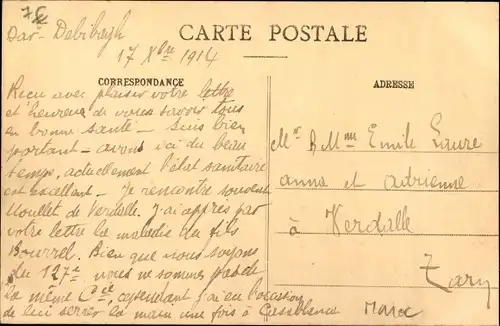 7€
CARTE POSTALE
Dar-Debibagh
17 Xbre 1914
CORRESPONDANCE
ADRESSE
Reçu avec plaisir votre lettre
et heureux de vous savoir tous
en bonne santé - Suis bien
portant - avons ici du beau
temps, actuellement l'état sanitaire
est excellent - Je rencontre souvent
Houllet de Verdalle. J'ai appris par
votre lettre la maladie du fils
Bourrel. Bien que nous soyons
du 127e nous ne sommes pas de
la même Cie, cependant j'ai eu l'occasion
de lui serrer la main une fois à Casablanca
Mr & Mme Emile Laure
anna et adrienne
à Verdalle
Tarn
Maroc